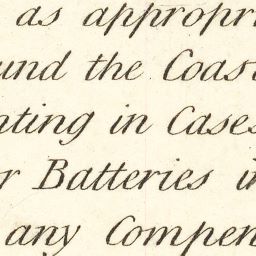 as appropri
und the Coast
nting in Cases
r Batteries i
any Compen